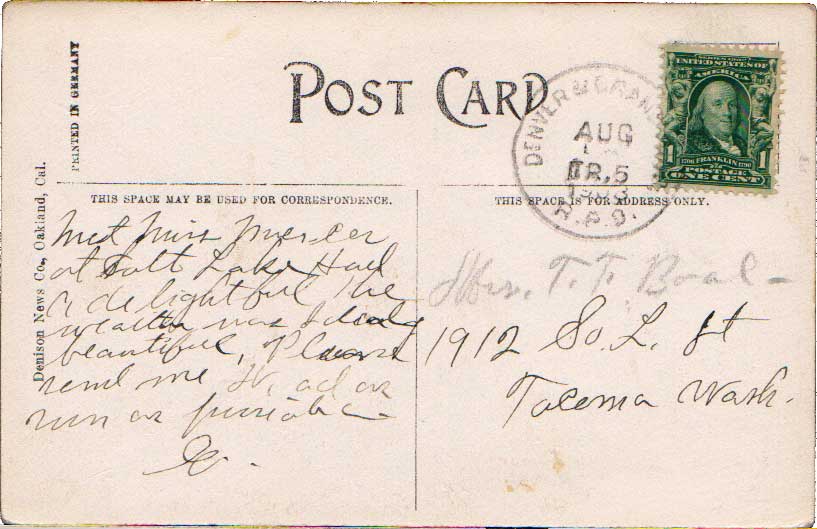 POST CARD
PRINTED IN GERMANY
Denison News Co., Oakland, Cal.
UNITED STATES OF
AMERICA
1 1706 FRANKLIN 1790 1
POSTAGE
ONE CENT
DENVER & GRAN
AUG
TR. 5
R.P.O.
THIS SPACE MAY BE USED FOR CORRESPONDENCE.
Met Miss Mercer
at Salt Lake Had
a delightful
was
beautiful, Please
send me ad as
soon as
THIS SPACE IS FOR ADDRESS ONLY.
Mrs. T. T. Boal
1912 So. L. St
Tacoma Wash.